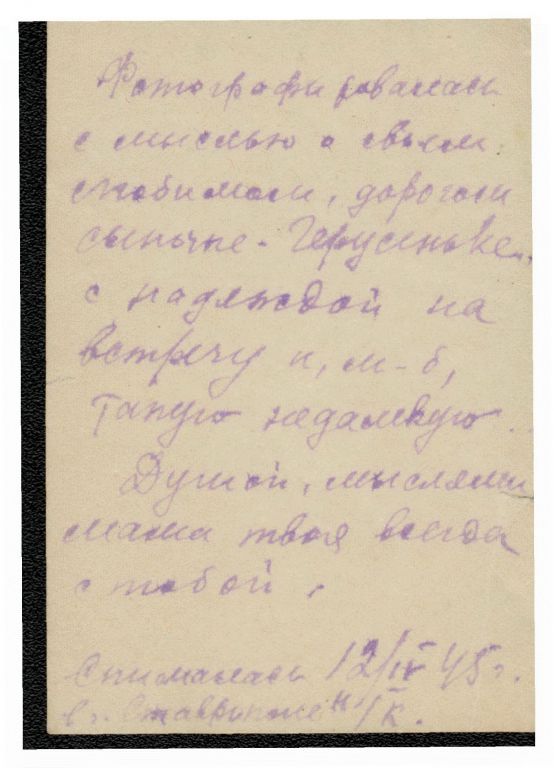 Фотографировалась
с мыслью о своем
любимом, дорогом
сыночке - Герусеньке,
с надеждой на
встречу и, м-б,
такую недалекую.
Душой, мыслями
мама твоя всегда
с тобой.
Снималась 12/IV 45 г.
в г. Ставрополе н/К.